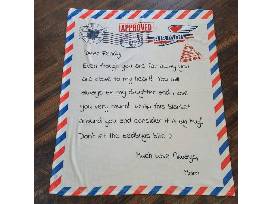 APPROVED
AIR MAIL
Dear
Even though you are far away you
are close to my heart! You will
always be my daughter and I love
you very much! Wrap this blanket
around you and consider it a big hug!
Don't let the bedbugs bite :)
Much love Always,
Mom